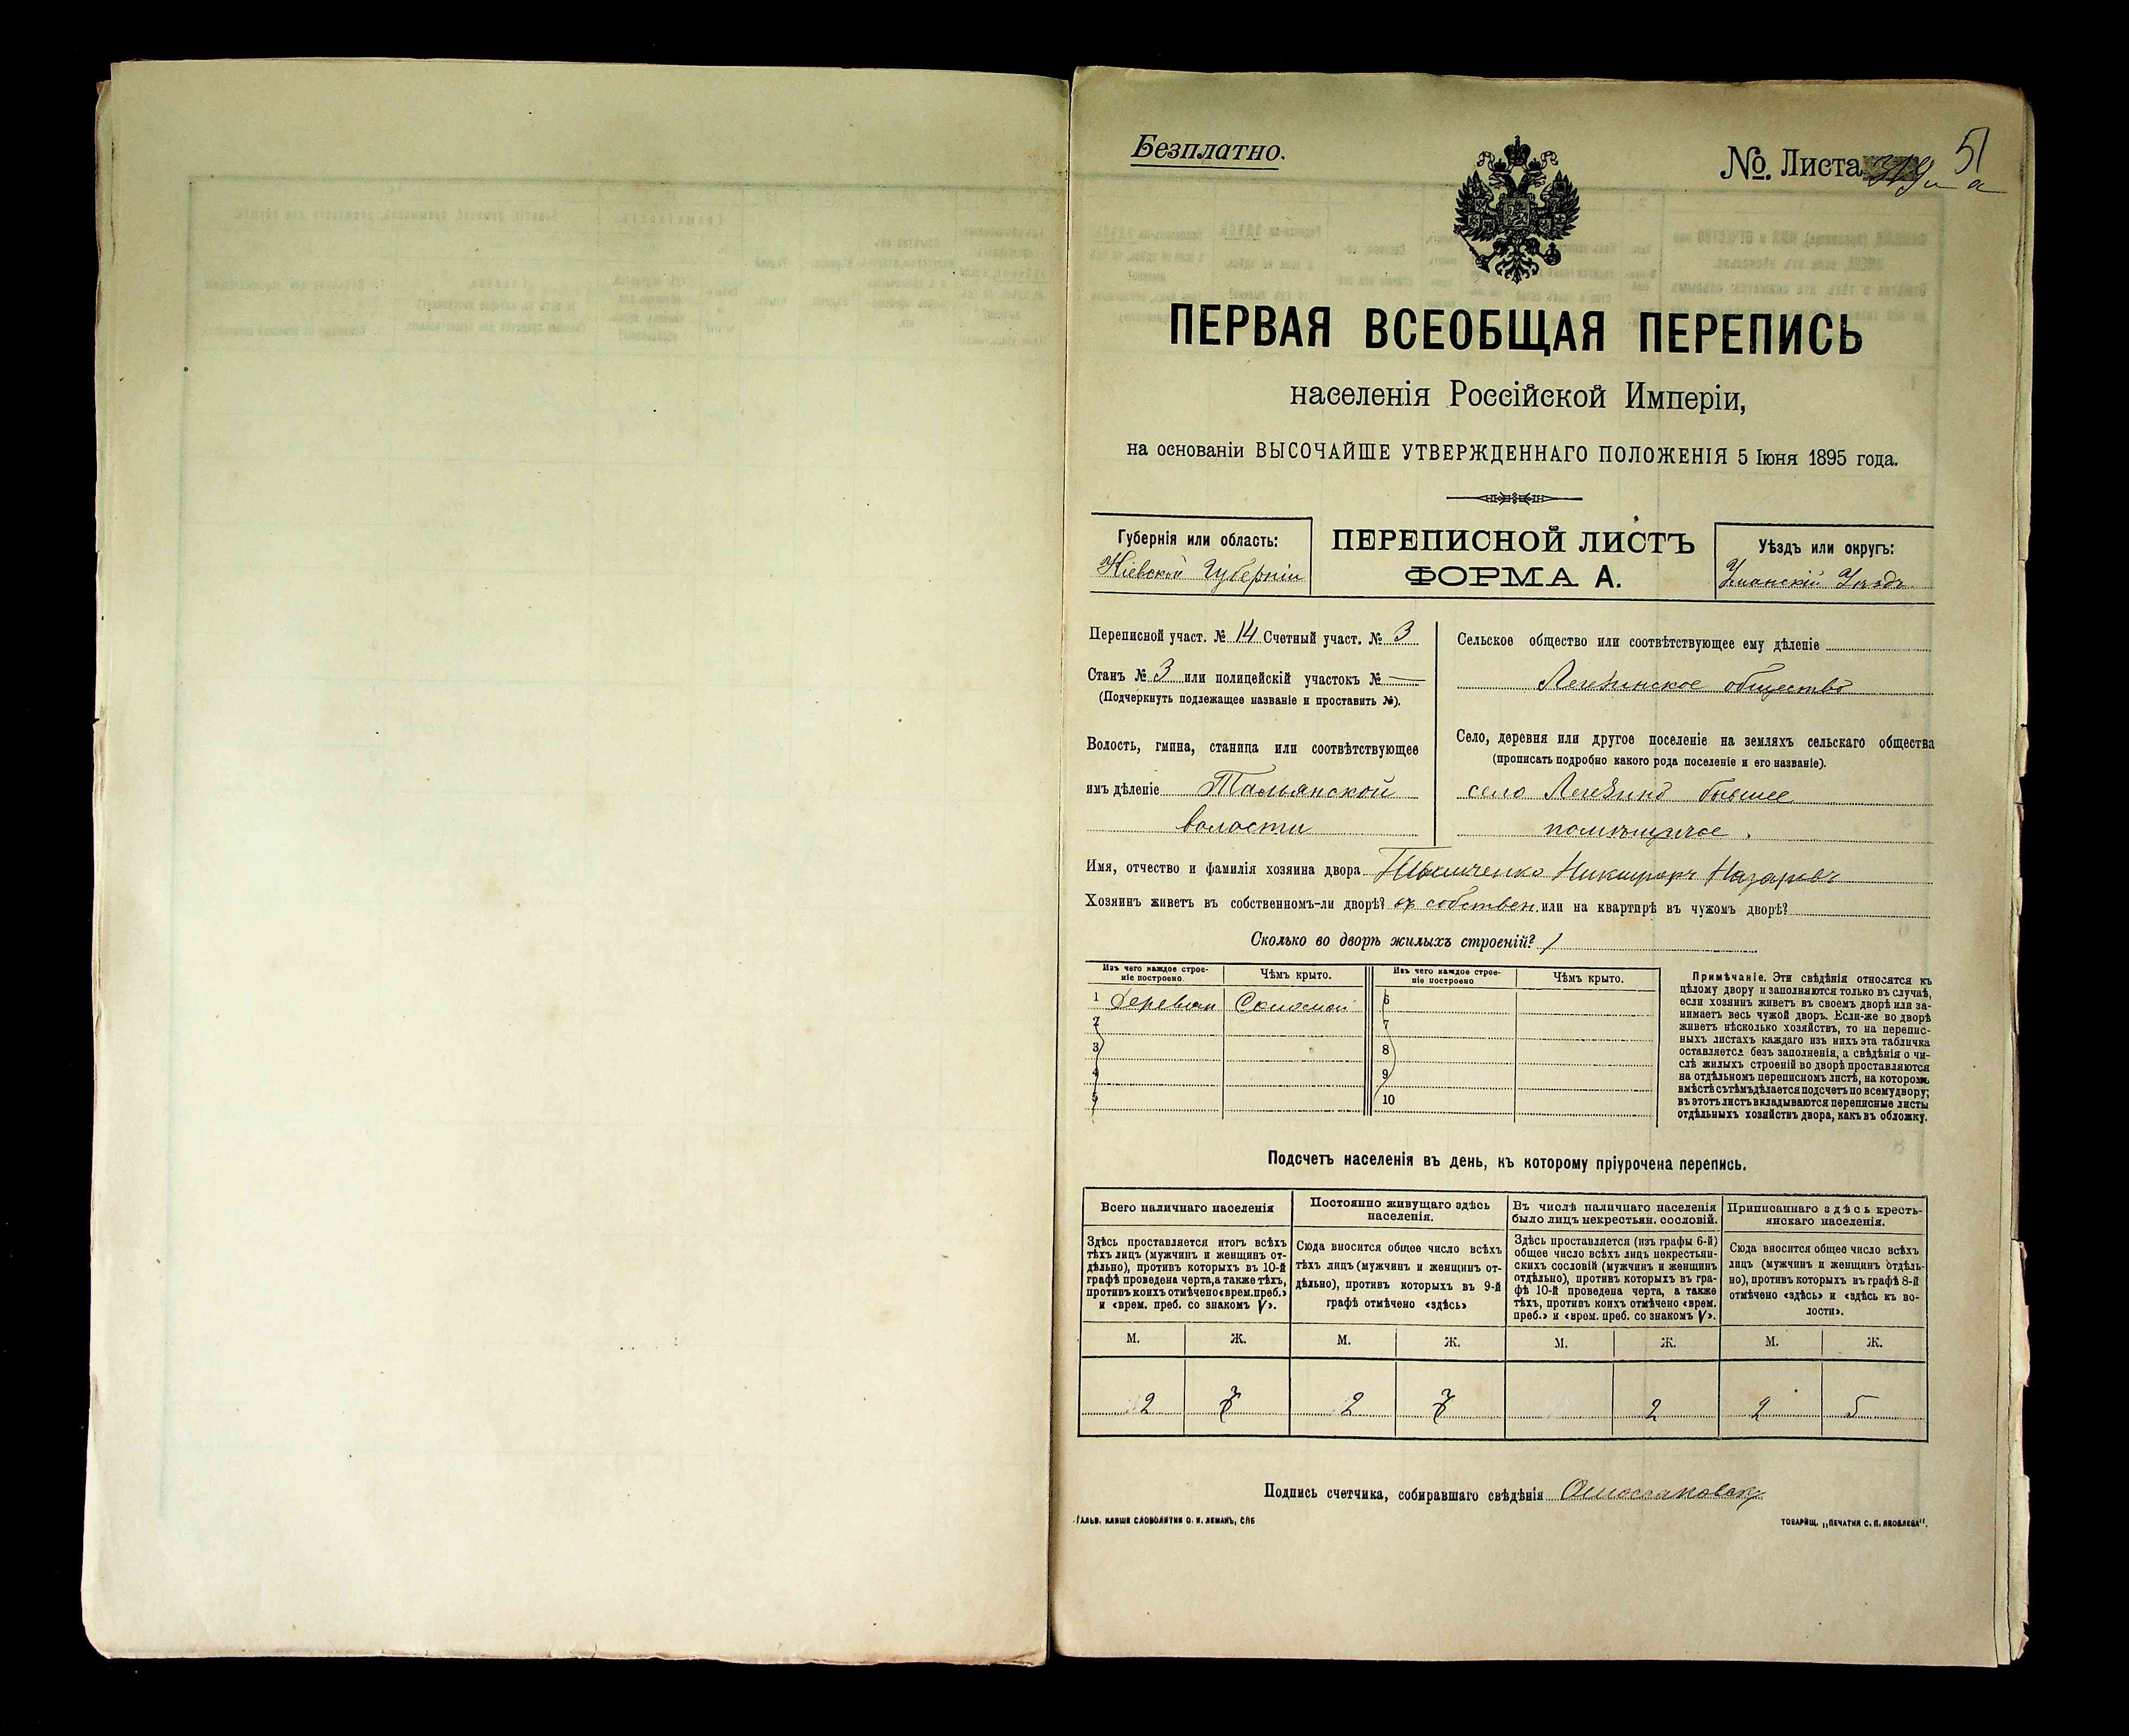 Безплатно.
№. Листа 51
ПЕРВАЯ ВСЕОБЩАЯ ПЕРЕПИСЬ
населенія Россійской Имперіи,
на основаніи ВЫСОЧАЙШЕ УТВЕРЖДЕННАГО ПОЛОЖЕНІЯ 5 Іюня 1895 года.
Губернія или область:
Кіевской Губерніи
ПЕРЕПИСНОЙ ЛИСТЪ
ФОРМА А.
Уѣздъ или округъ:
Уманскій Уѣздъ
Переписной участ. № 14 Счетный участ. № 3
Станъ № 3 или полицейскій участокъ № —
(Подчеркнуть подлежащее названіе и проставить №).
Волость, гмина, станица или соотвѣтствующее
имъ дѣленіе Тальянской
волости
Сельское общество или соотвѣтствующее ему дѣленіе
Легезинское общество
Село, деревня или другое поселеніе на земляхъ сельскаго общества
(прописать подробно какого рода поселеніе и его названіе).
село Легезино бывшее
помѣщичье.
Имя, отчество и фамилія хозяина двора Никифоръ Назаровъ
Хозяинъ живетъ въ собственномъ-ли дворѣ? въ собствен. или на квартирѣ въ чужомъ дворѣ?
Сколько во дворѣ жилыхъ строеній? 1
Изъ чего каждое строе-
ніе построено.
Чѣмъ крыто.
Изъ чего каждое строе-
ніе построено
Чѣмъ крыто.
1 Деревян Соломой 6
2 7
3 8
4 9
5 10
Примѣчаніе. Эти свѣдѣнія относятся къ
цѣлому двору и заполняются только въ случаѣ,
если хозяинъ живетъ въ своемъ дворѣ или за-
нимаетъ весь чужой дворъ. Если-же во дворѣ
живетъ нѣсколько хозяйствъ, то на перепис-
ныхъ листахъ каждаго изъ нихъ эта табличка
оставляется безъ заполненія, а свѣдѣнія о чи-
слѣ жилыхъ строеній во дворѣ проставляются
на отдѣльномъ переписномъ листѣ, на которомъ
вмѣстѣ съ тѣмъ дѣлается подсчетъ по всему двору;
въ этотъ листъ вкладываются переписные листы
отдѣльныхъ хозяйствъ двора, какъ въ обложку.
Подсчетъ населенія въ день, къ которому пріурочена перепись.
Всего наличнаго населенія
Здѣсь проставляется итогъ всѣхъ
тѣхъ лицъ (мужчинъ и женщинъ от-
дѣльно), противъ которыхъ въ 10-й
графѣ проведена черта, а также тѣхъ,
противъ коихъ отмѣчено «врем. преб.»
и «врем. преб. со знакомъ V».
Постоянно живущаго здѣсь
населенія.
Сюда вносится общее число всѣхъ
тѣхъ лицъ (мужчинъ и женщинъ от-
дѣльно), противъ которыхъ въ 9-й
графѣ отмѣчено «здѣсь»
Въ числѣ наличнаго населенія
было лицъ некрестьян. сословій.
Здѣсь проставляется (изъ графы 6-й)
общее число всѣхъ лицъ некрестьян-
скихъ сословій (мужчинъ и женщинъ
отдѣльно), противъ которыхъ въ гра-
фѣ 10-й проведена черта, а также
тѣхъ, противъ коихъ отмѣчено «врем.
преб.» и «врем. преб. со знакомъ V».
Приписаннаго здѣсь кресть-
янскаго населенія.
Сюда вносится общее число всѣхъ
лицъ (мужчинъ и женщинъ отдѣль-
но), противъ которыхъ въ графѣ 8-й
отмѣчено «здѣсь» и «здѣсь къ во-
лости».
М. Ж. М. Ж. М. Ж. М. Ж.
2 7 2 7 2 2 5
Подпись счетчика, собиравшаго свѣдѣнія
ГАЛЬВ. КЛИШЕ СЛОВОЛИТНИ О. И. ЛЕМАНЪ, СПБ
ТОВАРИЩ. „ПЕЧАТНЯ С. П. ЯКОВЛЕВА".